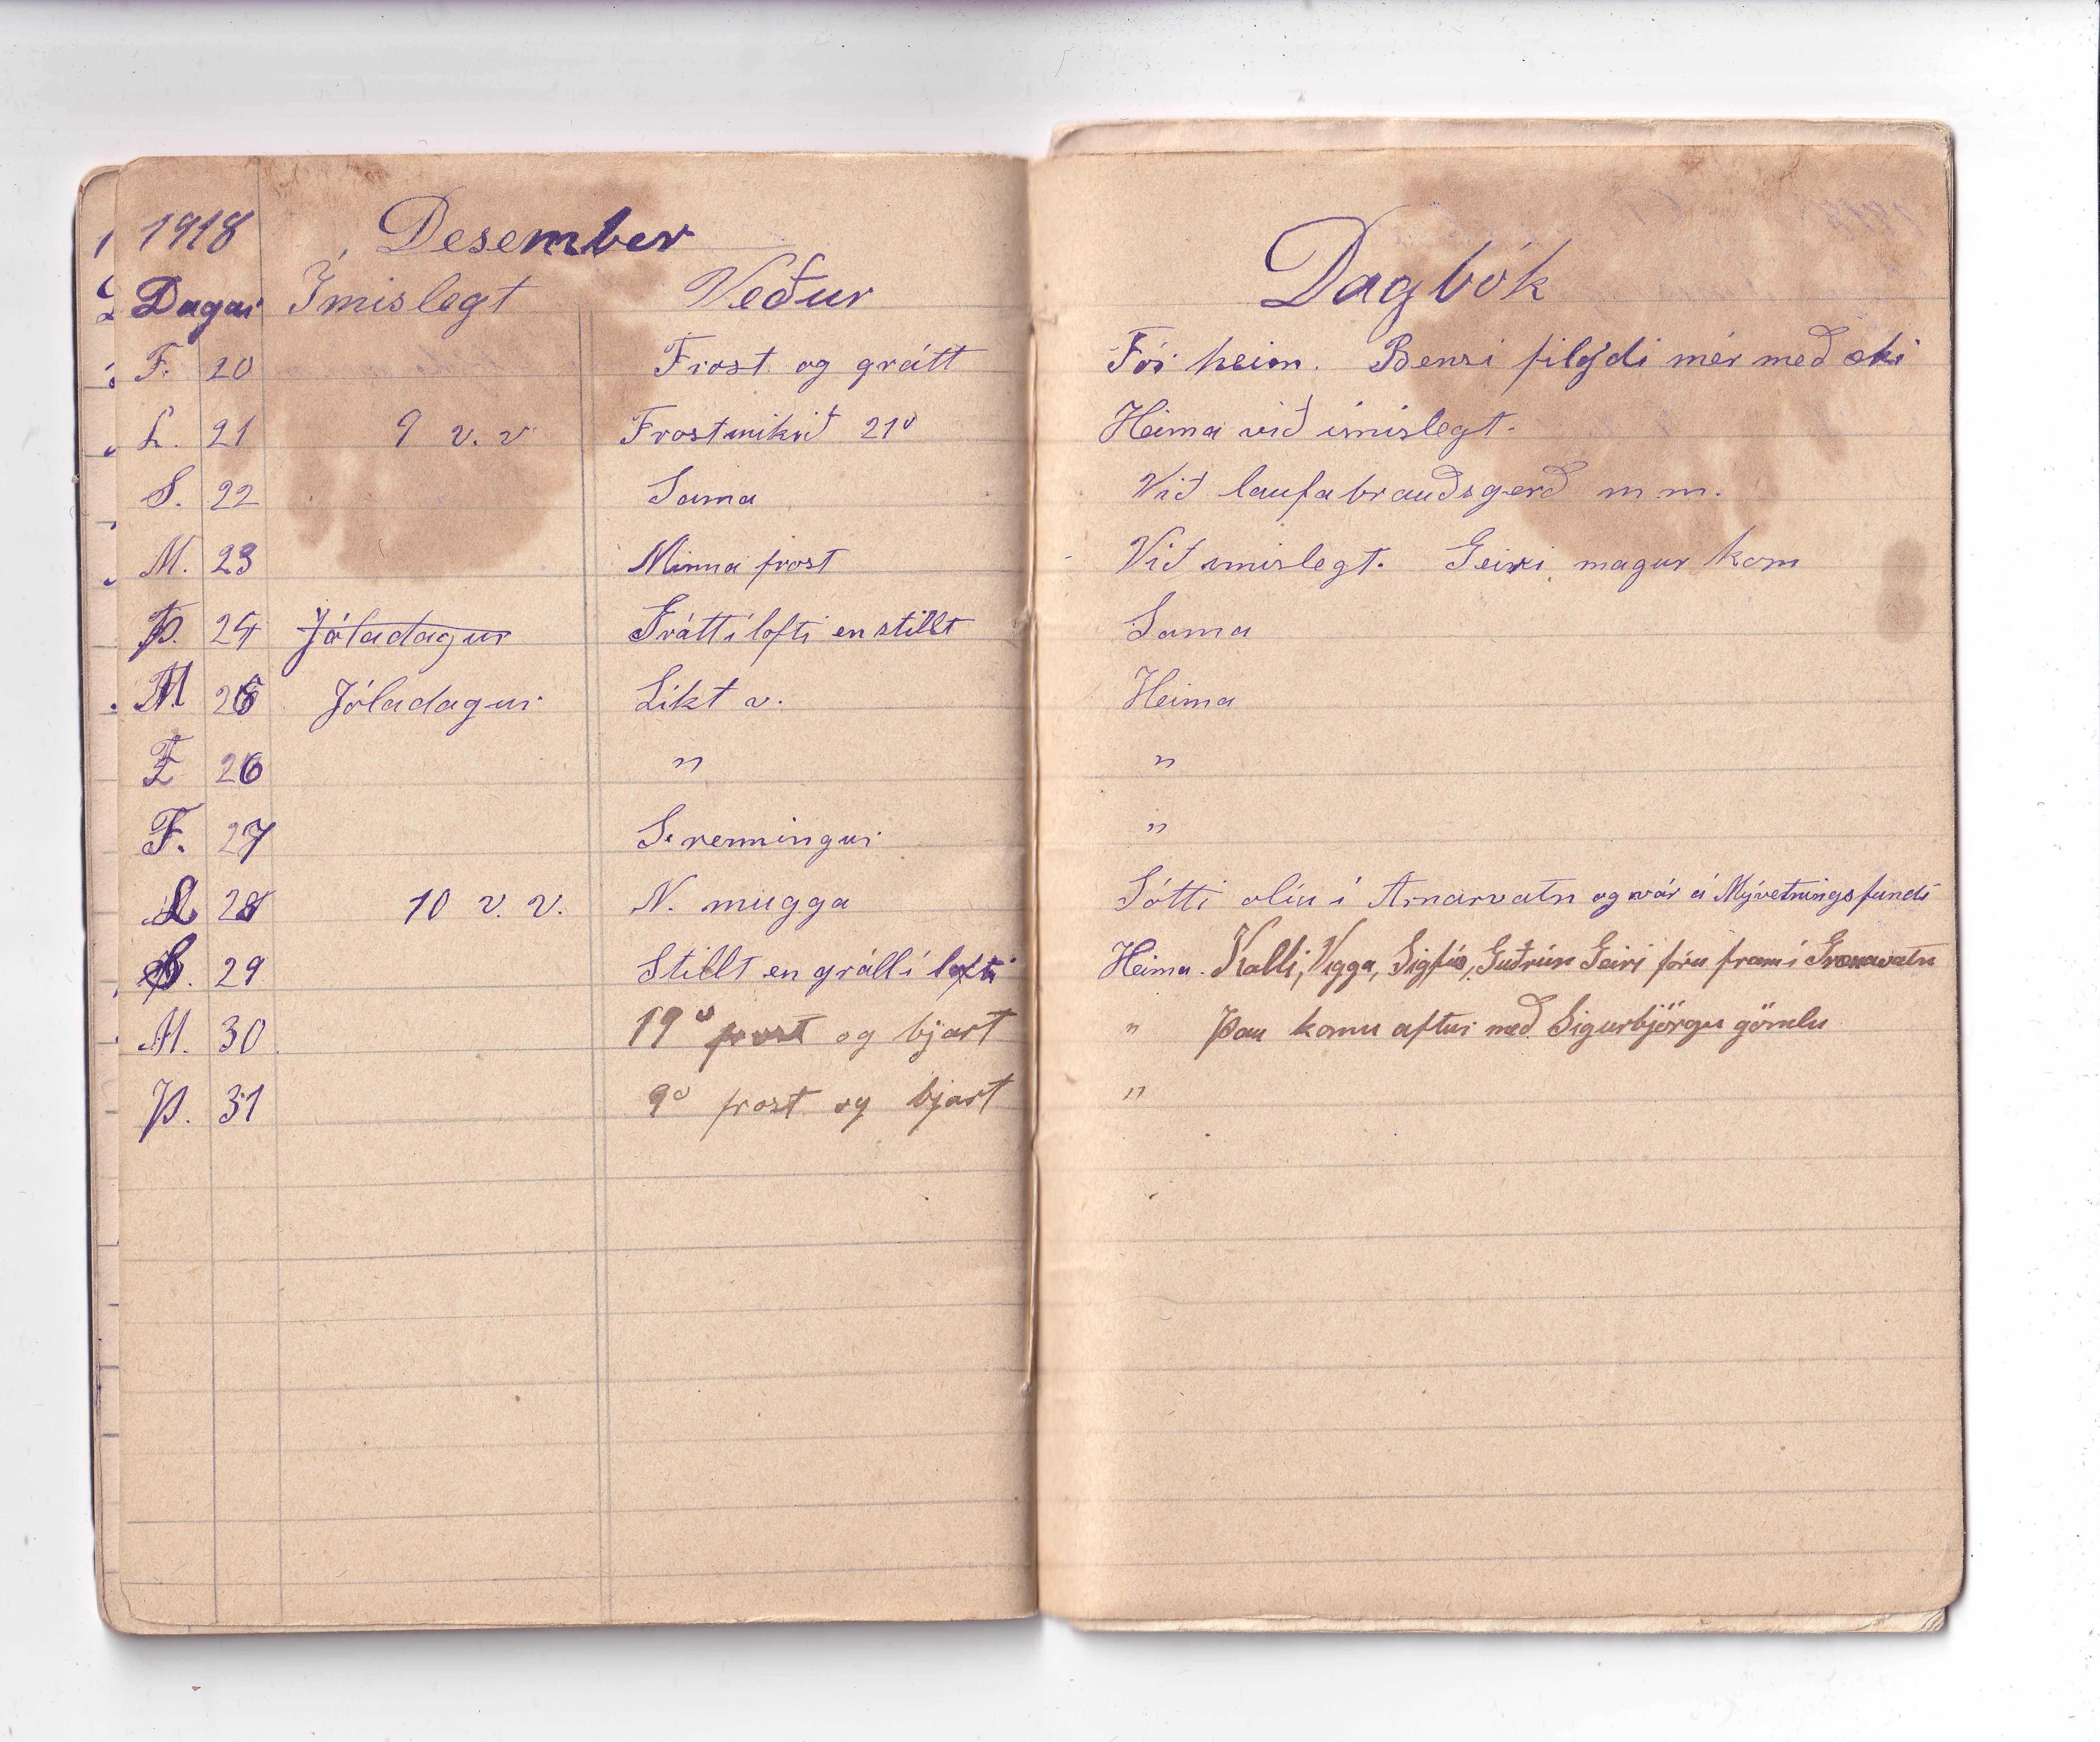 1918 Desember
Dagar Ímislegt Veður
F. 20 Frost og grátt
L. 21 9 v. v Frostmikið 21°
S. 22 Sama
M. 23 Minna frost
Þ. 24 Jóladagur Gráttílofti en stillt
M 25 Jóladagur Líkt v.
F 26 "
F. 27 S. renningur
L 28 10 v. v. N. mugga
S. 29 Stillt en gráttí lofti
M. 30 19° frost og bjart
Þ. 31 9° frost og bjart
Dagbók
Fór heim. Bensi filgdi mér með æki
Heima við ímislegt.
Við laufabrauðsgerð m.m.
Við imislegt. Geiri magur kom
Sama
Heima
"
"
Sótti olíu í Arnarvatn og var á Mývetningsfundi
Heima. Kalli, Vigga, Sigfús, Guðrún Geiri fóru fram í Grænavatn
" Þau komu aftur með Sigurbjörgu gömlu
"